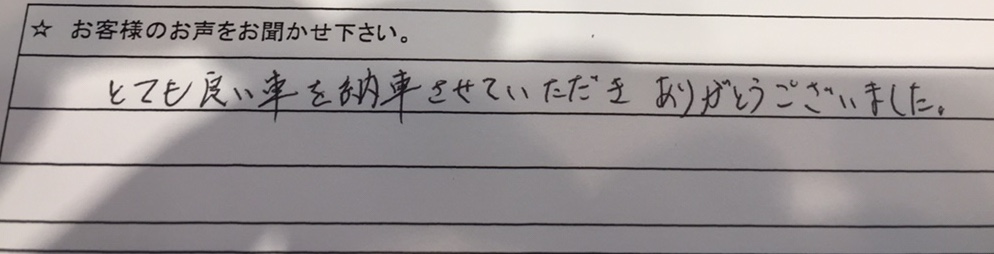 ☆ お客様のお声をお聞かせ下さい。
とても良い車を納車させていただき ありがとうございました。